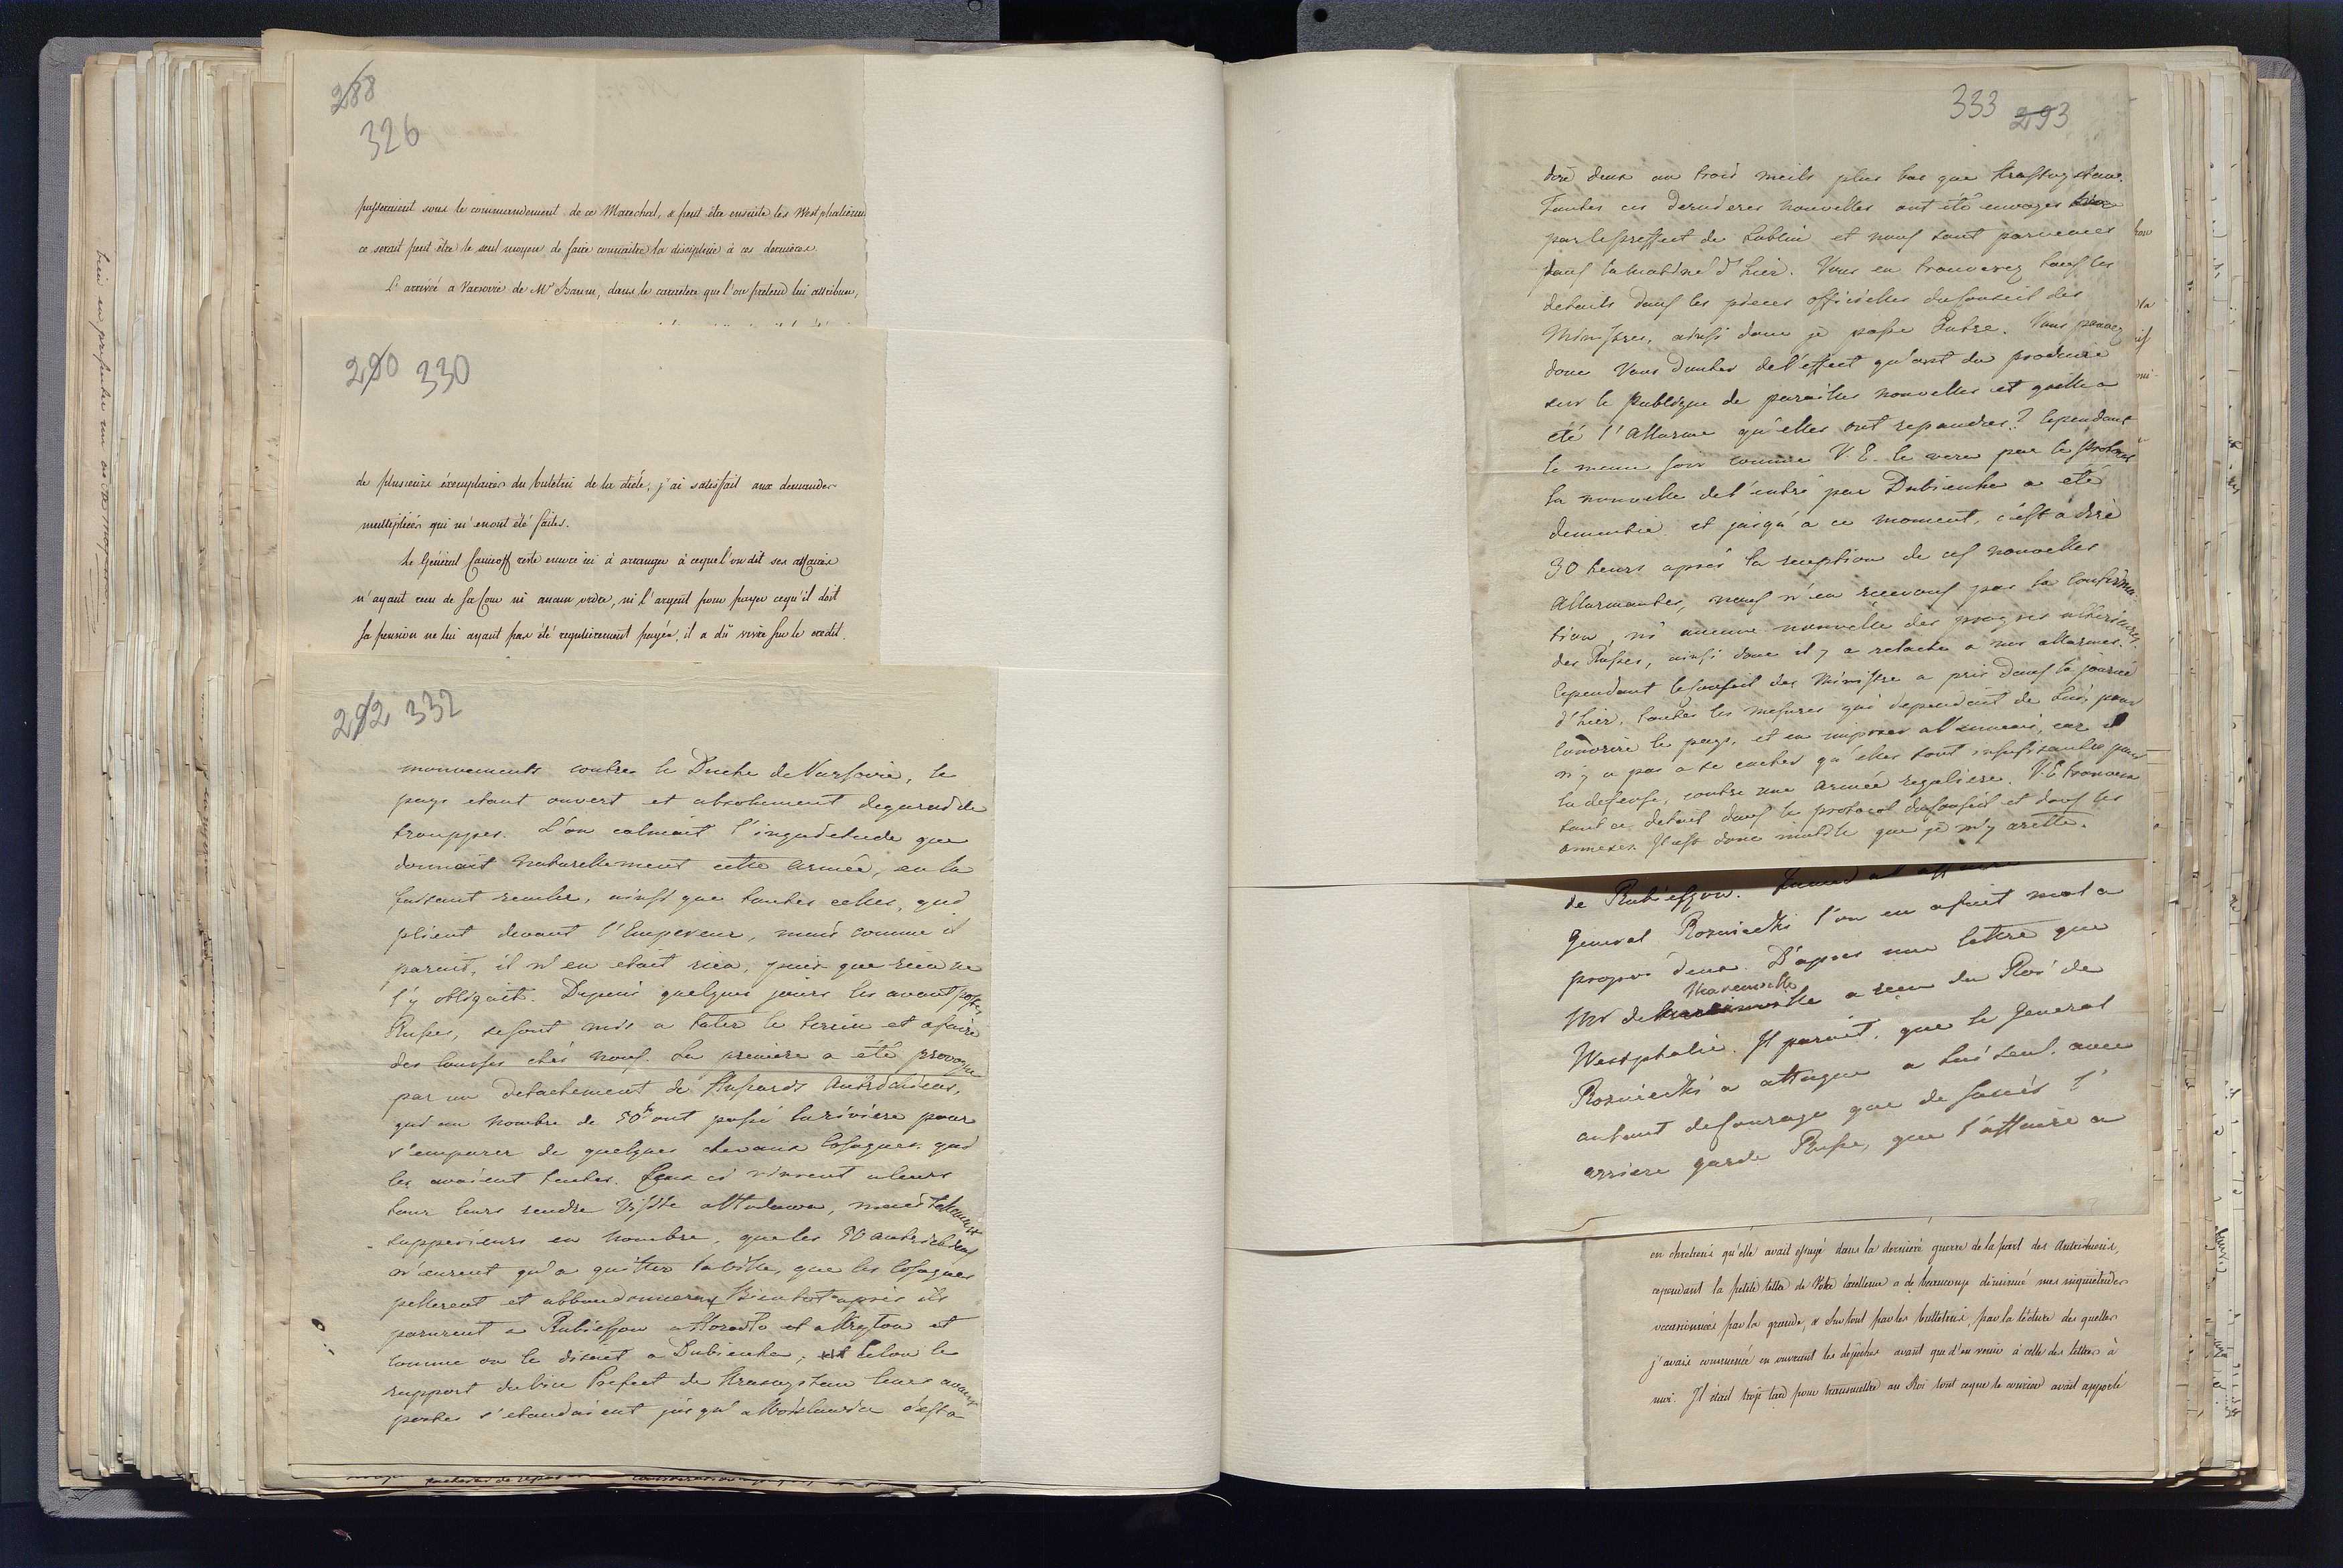 288
326
passeraient sous le commandement de ce Marechal, & peut être ensuite les Westphaliens
ce serait peut être le seul moyen de faire connaitre la discipline à ces derniers.
L'arrivée à Varsovie de Mr Baum, dans le caractère que l'on pretend lui attribuer,
290 330
de plusieurs éxemplaires du buletin de la diéte, j'ai satisfait aux demandes
multipliées qui m'en ont été faites.
Le Général Canicoff reste encore ici à arranger à ce que l'on dit ses affaires
n'ayant recu de sa Cour ni aucun ordre, ni l'argent pour payer ce qu'il doit
sa pension ne lui ayant pas été regulierement payée, il a dû vivre sur le credit.
292 332
mouvements contre le Duche de Varsovie, le
pays etant ouvert et absolument degarni de
trouppes. L'on calmait l'inquietude que
donnait naturellement cette armée, en la
faisant reculer, ainsi que toutes celles, qui
plient devant l'Empereur, mais comme il
parait, il n'en etait rien, puis que rien ne
l'y obligait. Depuis quelques jours les avant postes
Russes, se sont mis a tater le terrein et a faire
des courses chés nous. La premiere a été provoquée
par un detachement de Husards Autrichiens,
qui au nombre de 50 ont passé la riviere pour
s'emparer de quelques chevaux Cosaques qui
les avaient tentes. Ceux ci vinrent a leurs
tour leurs rendre visite, mais tellement
supperieurs en nombre, que les 50 autrichiens
n'eurent qu'a quitter la ville, que les Cosaques
pillerent et abbandonnerent. Bientot apres ils
parurent a Rubieszow a Horodlo et a Krylow et
comme on le disait a Dubienka, et selon le
rapport du Vice Prefect de Krasnystaw leurs avant
postes s'etendaient jusqu'a Woislawice c'est a
333 293
dire deux ou trois meils plus bas que Krasnystaw.
Toutes ces dernieres nouvelles ont été envoyes
par le preffect de Lublin et nous sont parvenues
dans la matiné d'hier. Vous en trouverez tous les
details dans les pieces officielles du Conseil des
Ministres, ainsi donc je passe outre. Vous pouvez
donc Vous douter de l'effect qu'ont du produire
sur le Publique de pareilles nouvelles et quelle a
été l'Allarme qu'elles ont repandues? Cependant
le meme soir comme V. E. le vera par le protocol
la nouvelle de l'entré par Dubienka a été
dementie et jusqu'a ce moment, c'est a dire
30 heurs après la reception de ces nouvelles
Allarmantes, nous n'en recevons pas la confirma-
tion, ni aucune nouvelle des progres ulterieures
des Russes, ainsi donc il y a relache a nos allarmes.
Cependant le Conseil des Ministre a pris dans la journé
d'hier, toutes les mesures qui dependait de Lui, pour
couvrire le pays, et en imposer a l'ennemi, car il
n'y a pas a se cacher qu'elles sont insufisantes pour
la defense, contre une armée reguliere. V. E. trouvera
tout ce detail dans le protocol du Conseil et dans les
annexes. Il est donc inutile que je m'y arette.
de Rubieszow.
General Rozniecki l'on en a fait mot a
propos d'eux. D'apres une lettre que
Mr de a reçu du Roi de
Westphalie. Il parait, que le General
Rozniecki a attaque a lui seul, avec
autant de Courage que de succés l'
arriere garde Russe, que l'affaire a
en chretiens qu'elle avait essuyé dans la derniere guerre de la part des Autrichiens,
cependant la petite lettre de Votre Excellence a de beaucoup diminué mes inquietudes
occasionnées par la grande, & surtout par les bulletins, par la lécture des quelles
j'avais commencé en ouvrant les dépêches avant que d'en venir à celle des lettres à
moi. Il était trop tard pour transmettre au Roi tout ce que le courier avait apporté